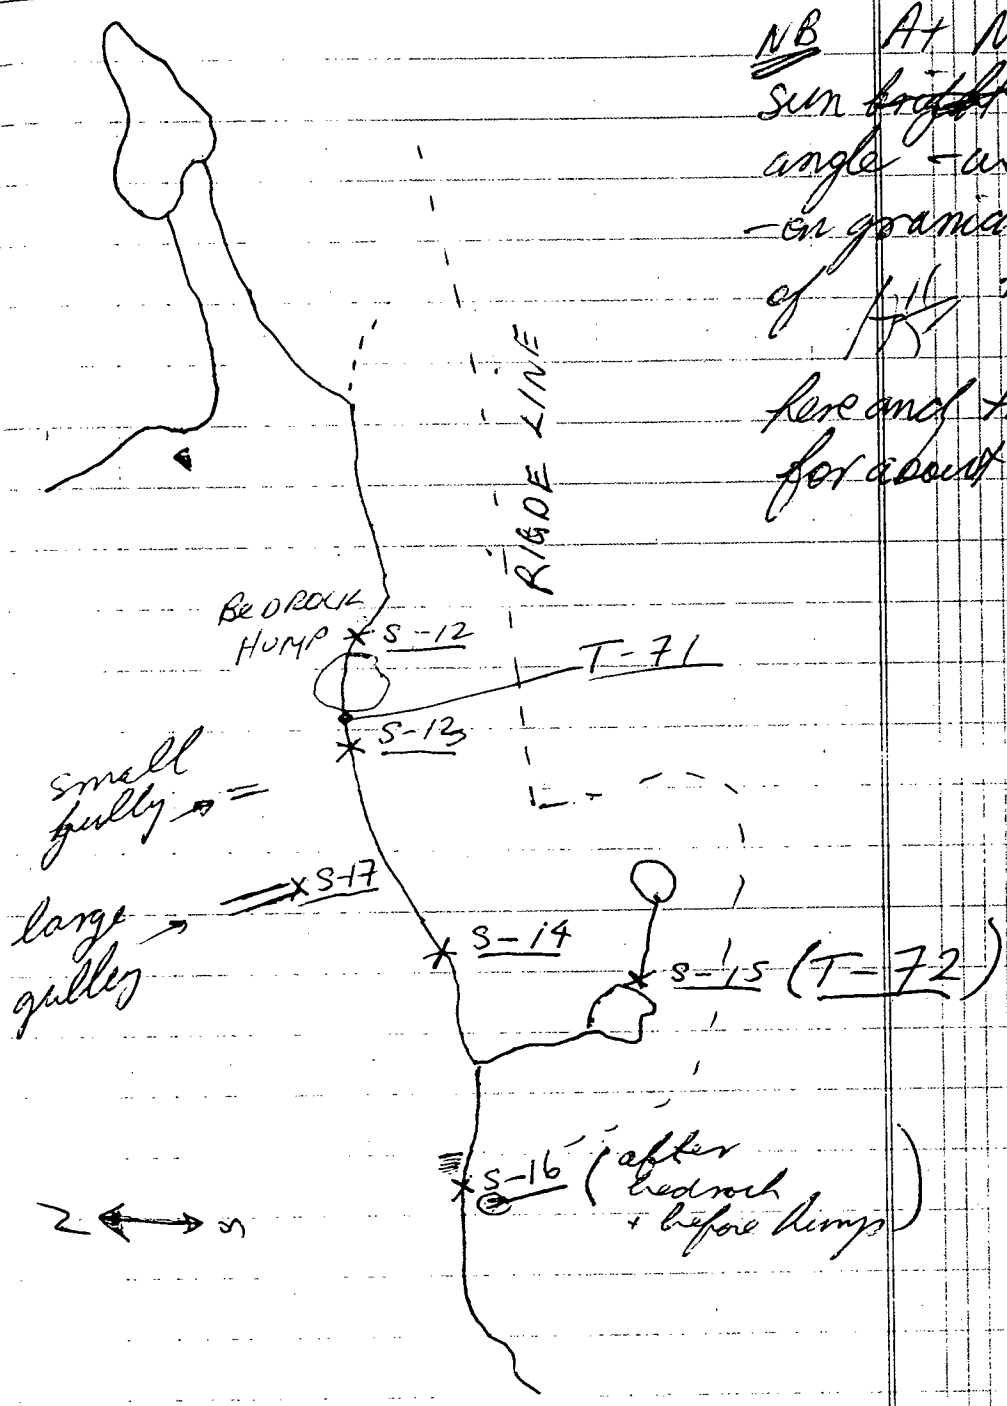 NB At
sun
angle
- on
of
here and
for about
RIGDE LINE
BEDROCK
HUMP
S-12
T-71
S-13
small
gully
S-17
large
gulley
S-14
S-15 (T-72)
S-16 (after
bedrock
+ before hump)
N S